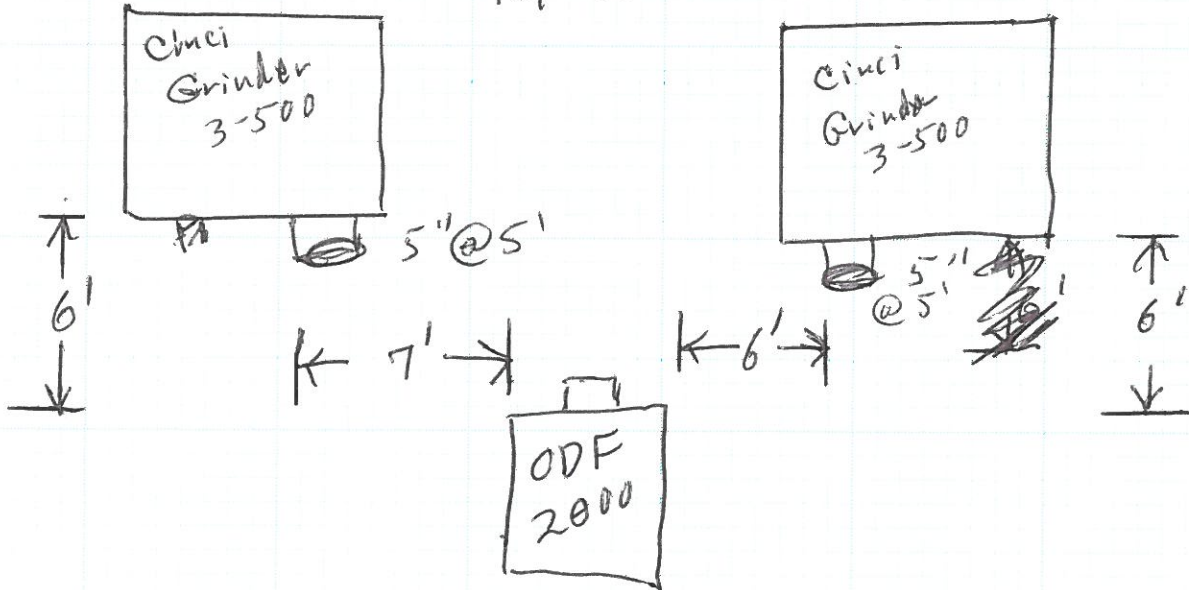 Cinci
Grinder
3-500
Cinci
Grinder
3-500
5" @ 5'
5"
@ 5'
6'
7'
6'
6'
ODF
2000